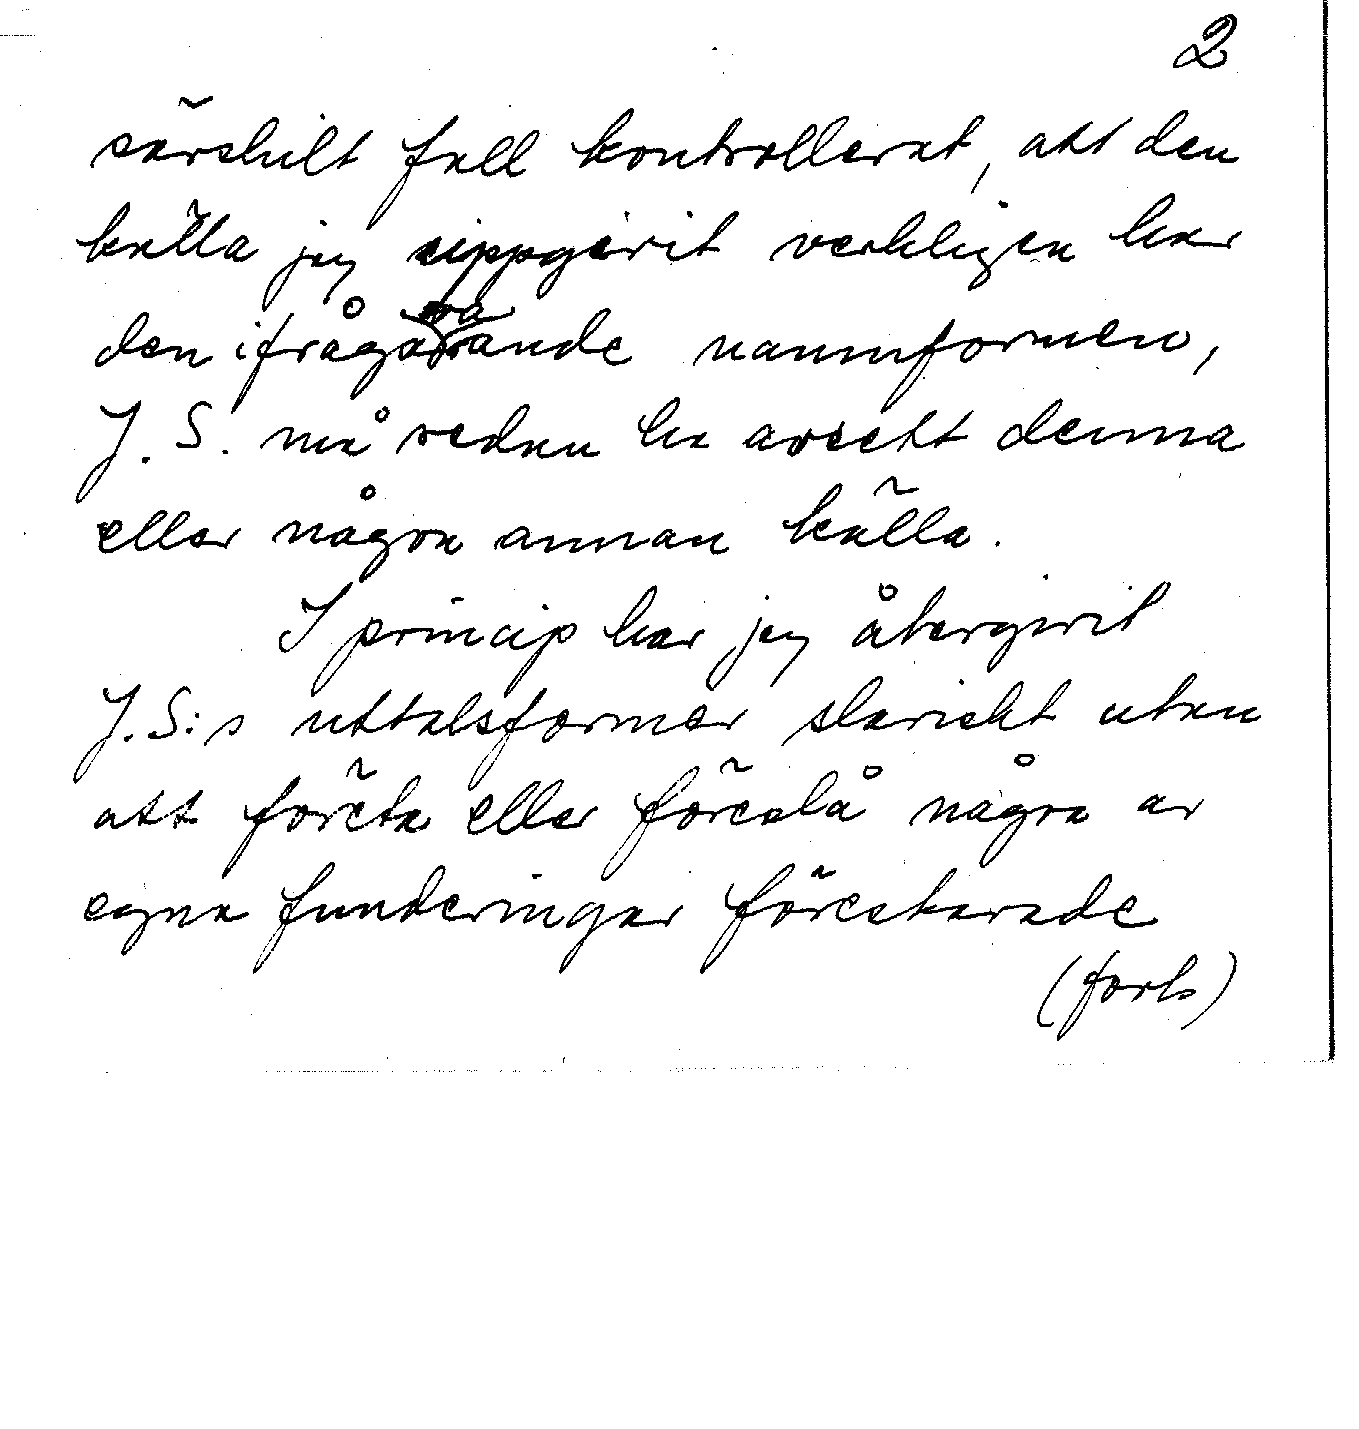 2
särskilt fall kontrollerat, att den
källa jag uppgivit verkligen har
den ifrågavarande namnformen,
J. S. må sedan ha avsett denna
eller någon annan källa.
I princip har jag återgivit
J.S:s uttalsformer slaviskt utan
att företa eller föreslå några av
egna funderingar förestavade
(forts)